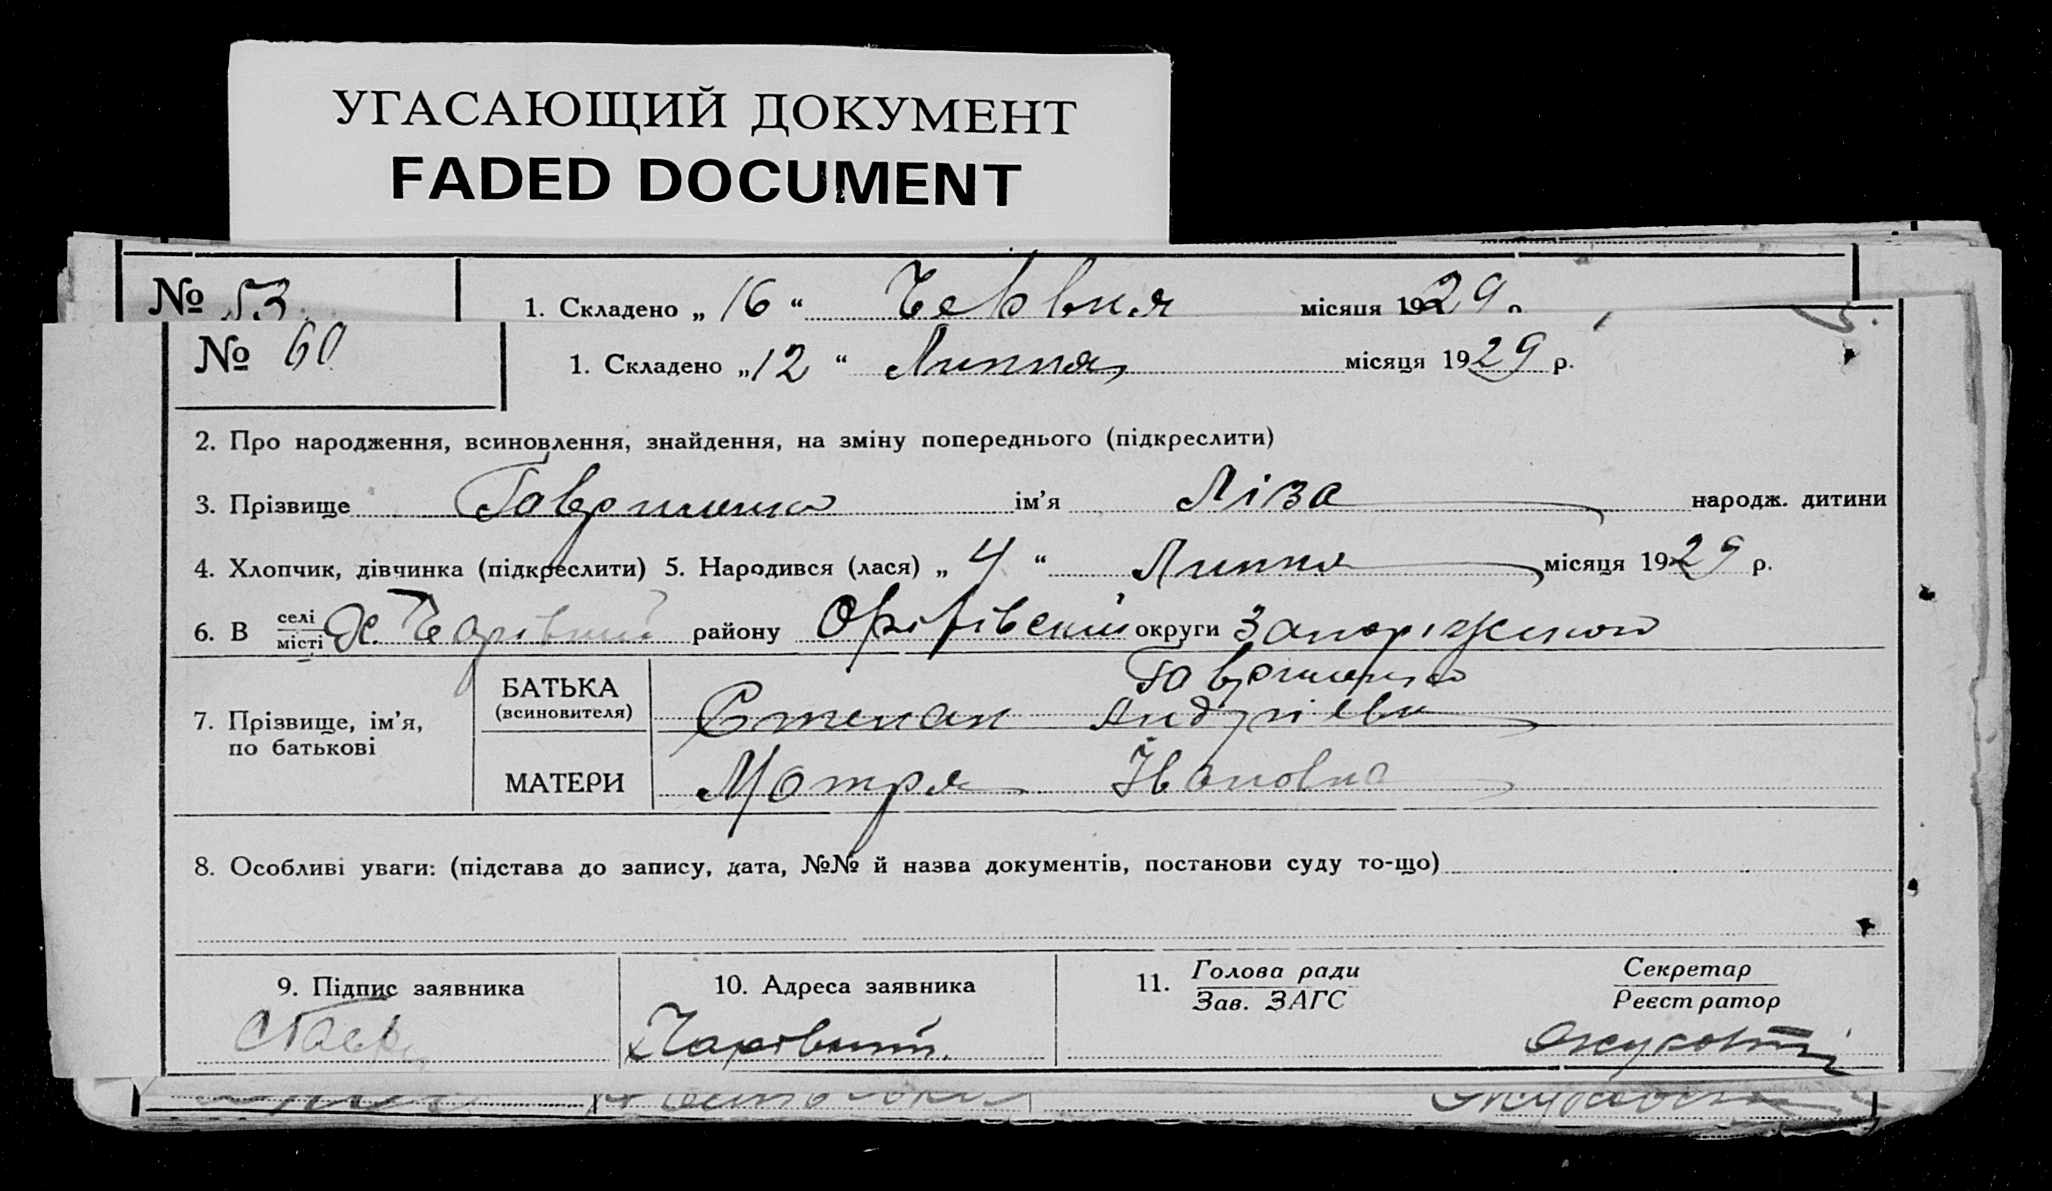 УГАСАЮЩИЙ ДОКУМЕНТ
FADED DOCUMENT
№ 53
1. Складено „ 16 “ Червня місяця 1929 р
№ 60
1. Складено „ 12 “ Липня місяця 1929 р.
2. Про народження, всиновлення, знайдення, на зміну попереднього (підкреслити)
3. Прізвище Гавриленко ім’я Ліза народж. дитини
4. Хлопчик, дівчинка (підкреслити) 5. Народився (лася) „ 4 “ Липня місяця 1929 р.
6. В селі
місті Х. Чарівний району Оріхівський округи Запоріжской
7. Прізвище, ім’я,
по батькові
БАТЬКА
(всиновителя)
Гавриленко
Степан Андрієви
МАТЕРИ
Мотря Івановна
8. Особливі уваги: (підстава до запису, дата, №№ й назва документів, постанови суду то-що)
9. Підпис заявника
10. Адреса заявника
Чарівний.
11. Голова ради
Зав. ЗАГС
Секретар
Реєстратор